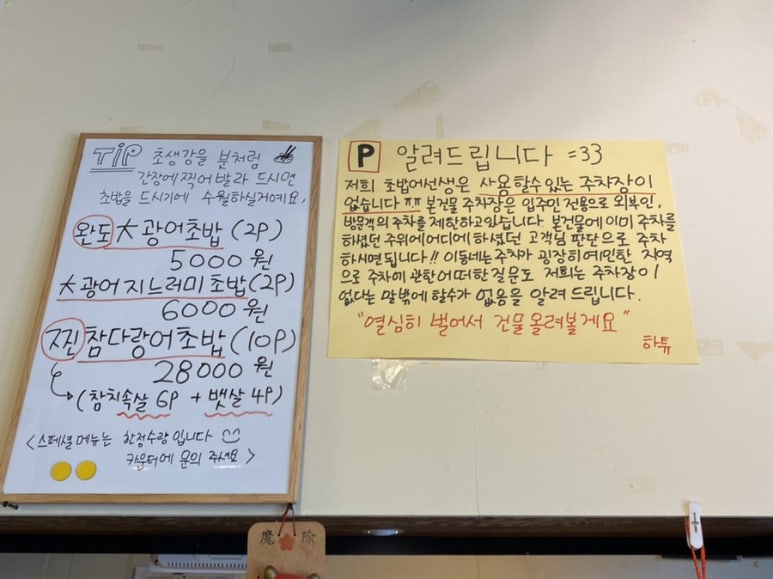 TIP 초생강을 붓처럼
간장에 찍어 발라 드시면
초밥을 드시기에 수월하실거예요.
완도 大광어초밥 (2P)
5000원
大광어 지느러미 초밥 (2P)
6000원
찐 참다랑어초밥 (10P)
28000원
(참치속살 6P + 뱃살 4P)
<스페셜메뉴는 한정수량입니다
카운터에 문의 주세요>
P 알려드립니다 =33
저희 초밥어선생은 사용할수있는 주차장이
없습니다 ㅠㅠ 본건물 주차장은 입주민 전용으로 외부인,
방문객의 주차를 제한하고있습니다 본건물에 이미 주차를
하셨던 주위에어디에 하셨던 고객님 판단으로 주차
하시면됩니다!! 이동네는주차가 굉장히예민한 지역
으로 주차에 관한어떠한질문도 저희는주차장이
없다는 말밖에 할수가 없음을 알려 드립니다.
"열심히 벌어서 건물올려볼게요"
하튜
魔 除